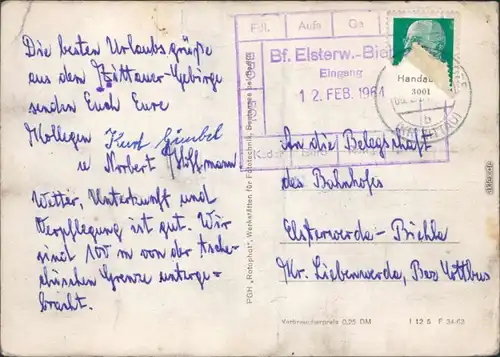 Die besten Urlaubsgrüße
aus dem Zittauer-Gebirge
senden Euch Eure
Kollegen Kurt
u Norbert
Wetter, Unterkunft und
Verpflegung ist gut. Wir
sind 100 m von der tsche-
chischen Grenze unterge-
bracht.
PGH „Rotophot", Werkstätten für Fototechnik, Bestensee bei
Fdl. Aufs Ga
Bf. Elsterw.-Bie
Eingang
12. FEB. 1964
Kader Büro
Handa
3001
b
An die Belegschaft
des Bahnhofes
Elsterwerda-Biehla
Kr. Liebenwerda, Bez Cottbus
Verbraucherpreis 0,25 DM I 12 5 F 34-63
akpool.de